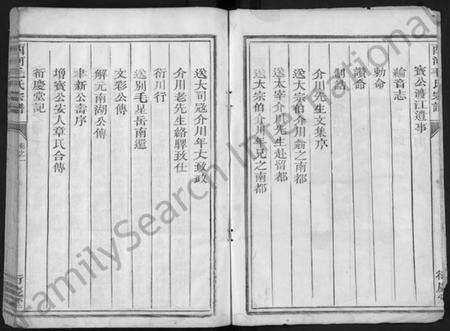 西河毛氏宗譜
賓公澧江遺事
綸音志
勅命
誥命
制誥
介川先生文集序
送大宗伯介川翁之南都
送太宰介川先生赴留都
送大宗伯介川年兄之南都
送大司寇介川年大致政
介川老先生絡驛致仕
衍川行
送別毛星岳南還
文彩公傳
解元南湖公傳
聿新公壽序
增賓公安人章氏合傳
衍慶堂記
西河毛氏宗譜
衍慶堂
FamilySearch International